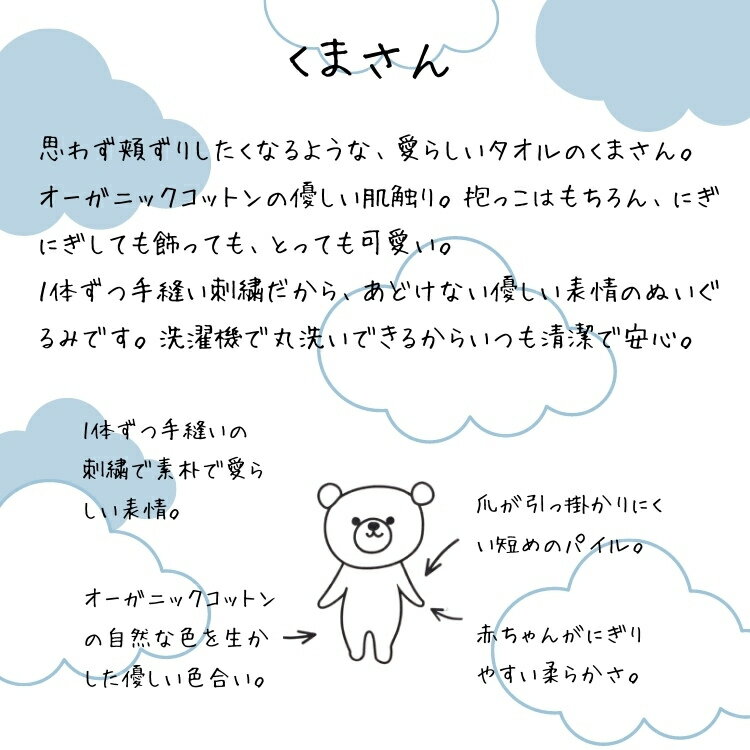 くまさん
思わず頬ずりしたくなるような、愛らしいタオルのくまさん。
オーガニックコットンの優しい肌触り。抱っこはもちろん、にぎ
にぎしても飾っても、とっても可愛い。
1体ずつ手縫い刺繍だから、あどけない優しい表情のぬいぐ
るみです。洗濯機で丸洗いできるからいつも清潔で安心。
1体ずつ手縫いの
刺繍で素朴で愛ら
しい表情。
爪が引っ掛かりにく
い短めのパイル。
オーガニックコットン
の自然な色を生か
した優しい色合い。
赤ちゃんがにぎり
やすい柔らかさ。